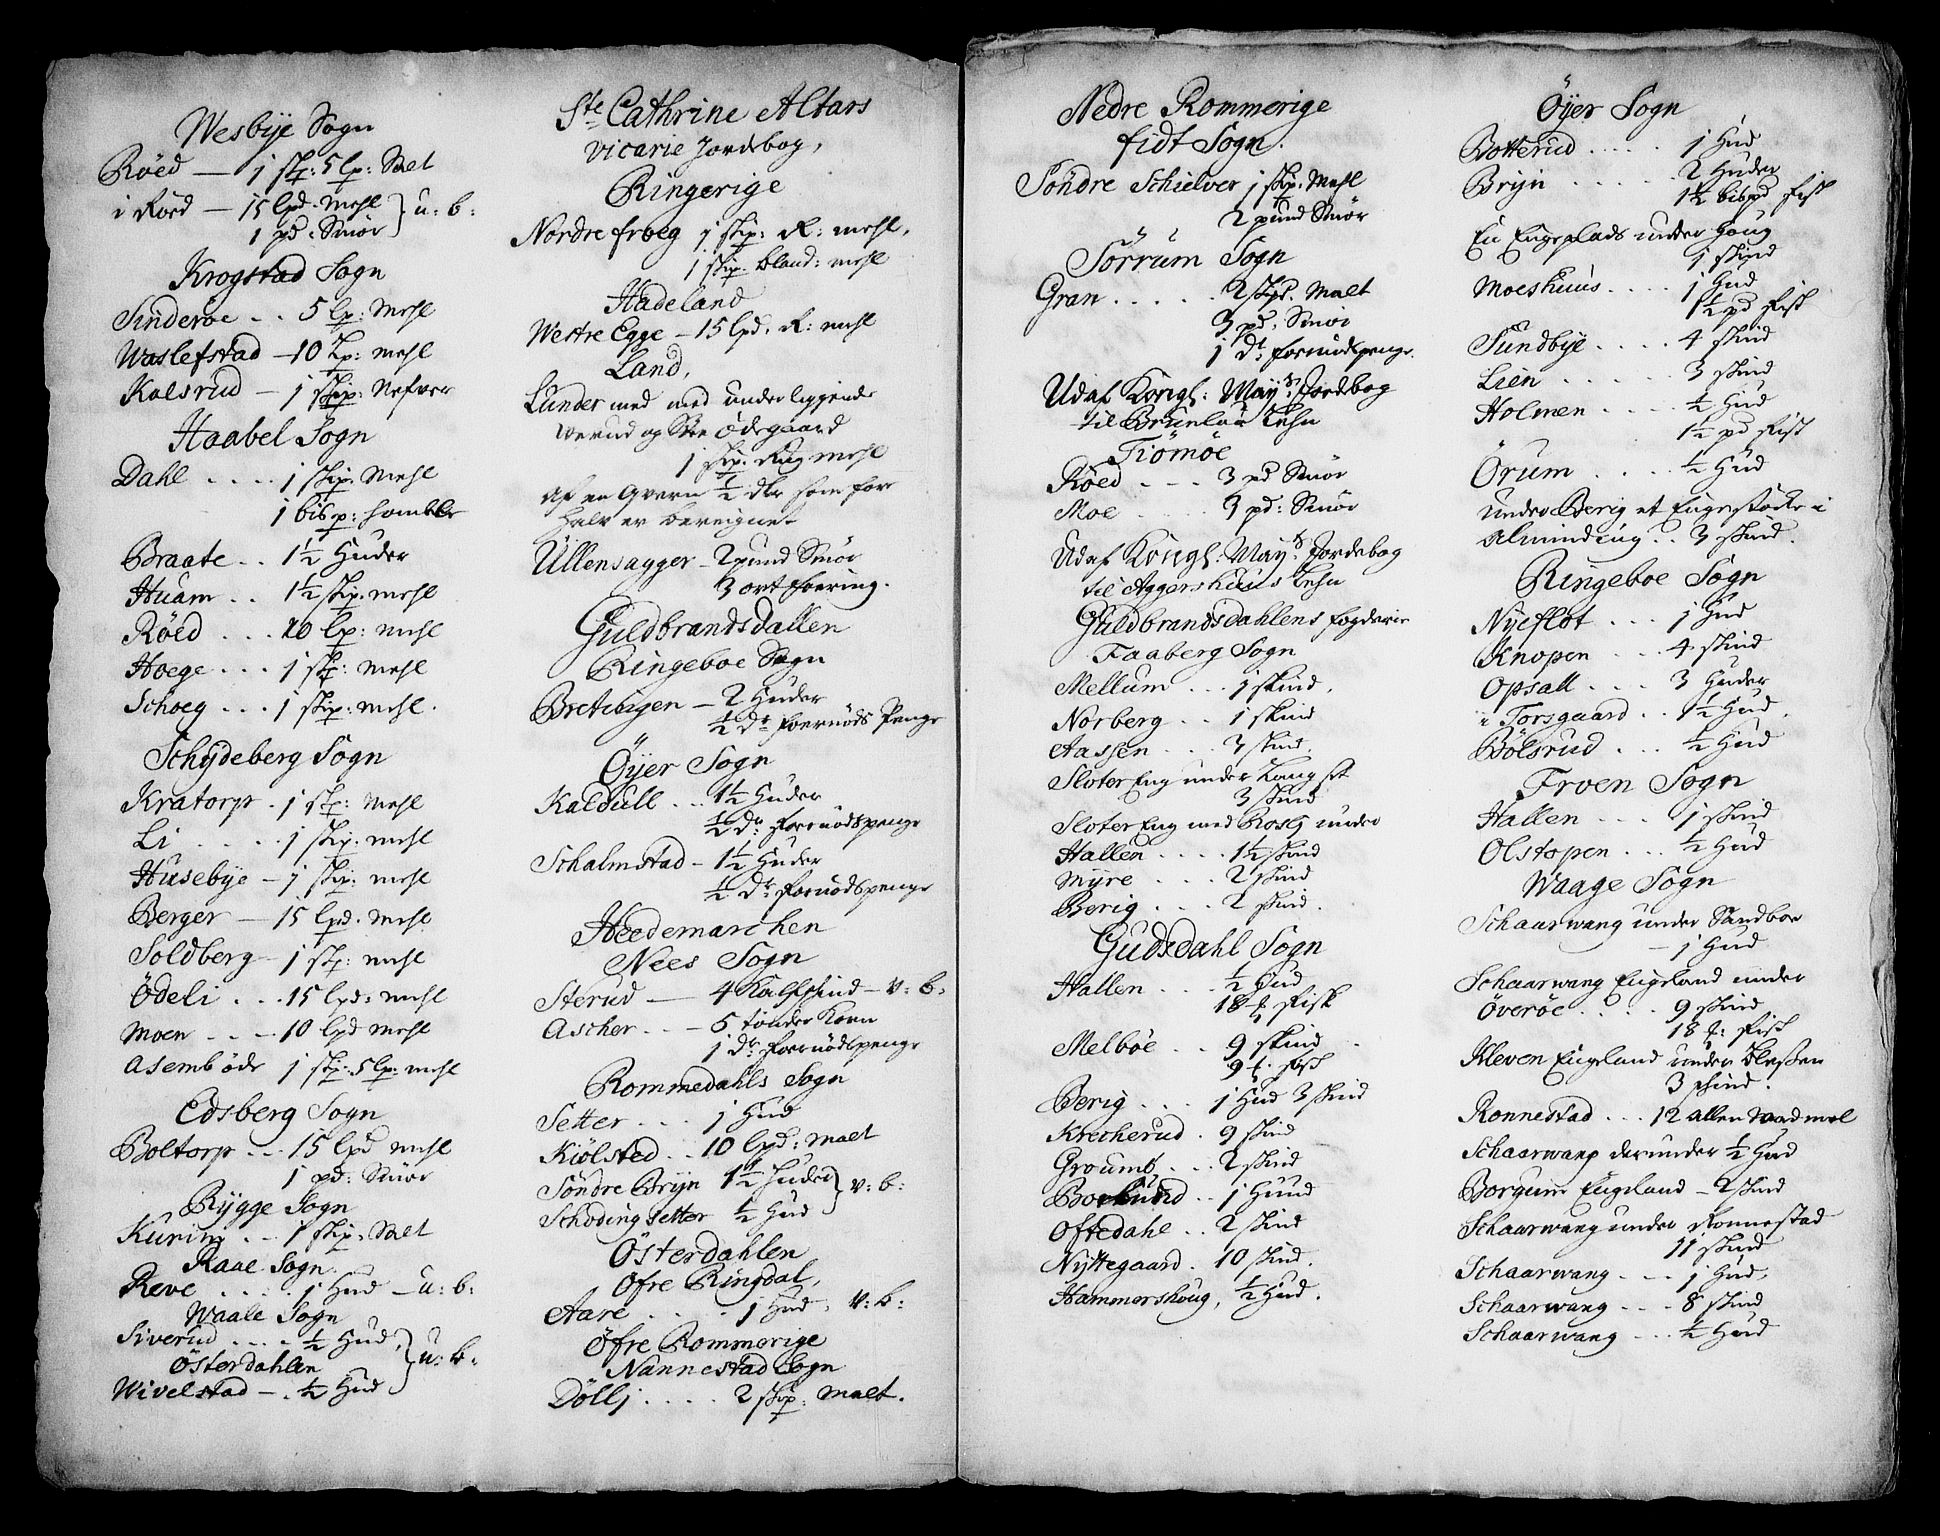 Wesbye Sogn
Röed — 1 skp: 5 lp: Salt
i Röed — 15 lpd. Mehl } u: b:
1 pd: Smör
Krogstad Sogn
Sinderöe .. 5 lp: Mehl
Waslefstad — 10 Lp: mehl
Kolsrud — 1 skip: Nefver
Haabel Sogn
Dahl .... 1 skip. Mehl
1 bisp:
Braate .. 1½ Huder
Huam .. 1½ skip. mehl
Röed ... 10 lp: mehl
Hoege ... 1 skp: mehl
Schoeg ... 1 skip: mehl.
Schÿdeberg Sogn
Kratorp . 1 skp: mehl
Li .... 1 skip: mehl
Husebÿe — 1 skip: mehl
Berger — 15 lpd. mehl
Soldberg — 1 skp: mehl
Ödeli ... 15 lpd: mehl
Moen ... 10 lpd mehl
Asemböde 1 skp: 5 lp: mehl
Edsberg Sogn
Boltorp ... 15 lpd mehl
1 pd: Smör
Rÿgge Sogn
Kuring ... 1 skip. Salt
Raae Sogn.
Reve ..... 1 Hud — u: b:
Waale Sogn
Siverud .... ½ Hud, } u: b:
Österdahlen
Wivelstad — . ½ Hud
Ste Cathrine Altars
vicarie Jordebog,
Ringerige
Nordre froeg 1 skip: R: mehl,
1 skip. bland: mehl
Hadeland
Westre Egge — 15 lpd. R: mehl
Land,
Lunder med med underliggende
Werud og Ödegaard
1 skip. Rug mehl
Af en Qvern ½ dlr som for
halv er bereignet
Üllensagger — 2 pund Smör
3 ort foering.
Guldbrandsdallen
Ringeboe Sogn
Bretingen — 2 Huder
½ Dr foernöds Penge
Öÿer Sogn
Kaldull ... 1½ Huder
½ Dr: foernödspenge
Schalmstad — 1½ Huder
½ Dr: fornödspenge
Heedemarchen
Nees Sogn
Sterud — 4 Kalfskind — v: b:
Ascher ... — 5 tönder Korn
1 Dr: foernödspenge
Rommedahls Sogn
Setter .... 1 Hud
Kiölsted .. 10 lpd: malt
Söndre Brÿn 1½ Huder } v: b:
Schoding setter ½ Hud
Österdahlen
Öfre Ringdal,
Aare ..... 1 Hud. v: b:
Öfre Rommerige
Nannestad Sogn
Döllj .... 2 skip: malt.
Nedre Rommerige
fidt Sogn.
Söndre Schielver 1 skp: Mehl
2 pund Smör
Sörrum Sogn
Gran ..... 2 skpd. Malt
3 pd. Smör
1 Dr. fornödspenge
Udaf Kongl: Mays Jordebog
til Brunlau Lehn
Tiömöe
Röed ... 3 pd Smör
Moe .... 3 pd: Smör
Udaf Kongl: Mays Jordebog
til Aggershuus Lehn
Guldbrandsdahlens fogderie
Faaberg Sogn
Mellum ... 1 skind.
Norberg .. 1 skind
Aassen ... 3 skind.
Sloter Eng under
3 skind
Sloter Eng med under
Hallen .... 1½ skind
Mÿre ... 2 skind
Berig ... 2 skind.
Gudsdahl Sogn
Hallen ... ½ Hud
18 fisk
Melböe .. 9 skind
9 fisk
Berig ... 1 Hud 3 skind
Krecherud . 9 skind
Groumb ... 2 skind
.. 1 Huud
Oftedahl .. 2 skind
Nÿttegaard . 10 skind.
Hammershoug, ½ Hud.
Öÿer Sogn
Botterud ..... 1 Hud
Brÿn ..... 2 Huder
1½ bispd fisk
En Engeplads under Houg
1 skind
Moeshuus .... 1 Hud
1½ pd fisk
Sundbÿe .... 4 skind
Lien ..... 3 skind
Holmen .... ½ Hud
1½ pd fisk
Örum .... ½ Hud
under Berig et Engestöcke i
Alminding .. 3 skind.
Ringeboe Sogn
Nÿeflöt ... 1 Hud
Knopen ... 4 skind
Opsall .... 3 Huder
i Torsgaard .. 1½ Hud.
Bölsrud ... ½ Hud
Froen Sogn
Hallen ... 1 skind
Olstopen ... ½ Hud
Waage Sogn
Schaarwang under Sandboe
— 1 Hud
Schaarwang Engeland under
Överöe .... 9 skind
18 fisk
Kleven Engeland under Bleßen
3 skind.
Ronnestad ... 12 allen Vardmel
Schaarwang derunder ½ Hud
Borgum Engeland — 2 skind
Schaarwang under Ronnestad
11 skind
Schaarwang ... 1 Hud,
Schaarwang ... 8 skind
Schaarwang ... ½ Hud